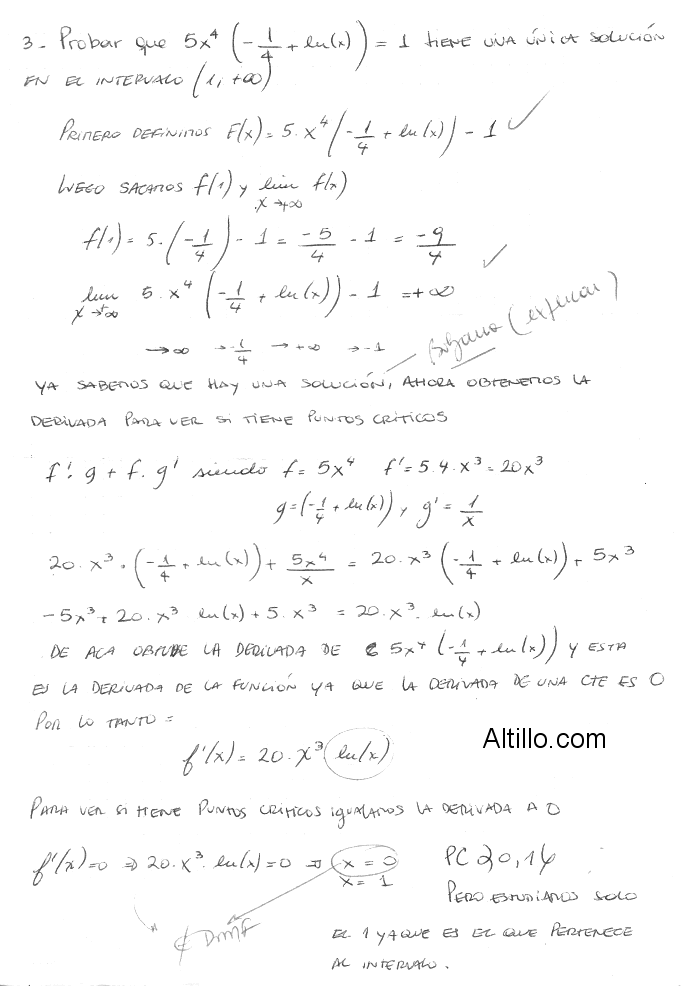 3- Probar que 5x⁴ (-1/4 + ln(x)) = 1 tiene una única solución
en el intervalo (1, +∞)
Primero definimos F(x) = 5. x⁴ (-1/4 + ln(x)) - 1 ✓
Luego sacamos f(1) y lim x→+∞ f(x)
f(1) = 5. (-1/4) - 1 = -5/4 - 1 = -9/4 ✓
lim x→+∞ 5. x⁴ (-1/4 + ln(x)) - 1 = +∞
→∞ →-1/4 →+∞ →-1
Bolzano (explicar)
Ya sabemos que hay una solución, ahora obtenemos la
derivada para ver si tiene puntos críticos
f'. g + f. g' siendo f = 5x⁴ f' = 5.4.x³ = 20x³
g = (-1/4 + ln(x)), g' = 1/x
20. x³ . (-1/4 + ln(x)) + 5x⁴/x = 20. x³ (-1/4 + ln(x)) + 5x³
-5x³ + 20. x³ ln(x) + 5. x³ = 20. x³. ln(x)
De aca obtube la derivada de 5x⁴ (-1/4 + ln(x)) y esta
es la derivada de la función ya que la derivada de una cte es 0
Por lo tanto =
Altillo.com
f'(x) = 20. x³ ln(x)
Para ver si tiene puntos críticos igualamos la derivada a 0
f'(x) = 0 ⇒ 20. x³. ln(x) = 0 ⇒ x = 0 PC {0,1}
x = 1
Pero estudiamos solo
∉ Domf
el 1 ya que es el que pertenece
al intervalo.